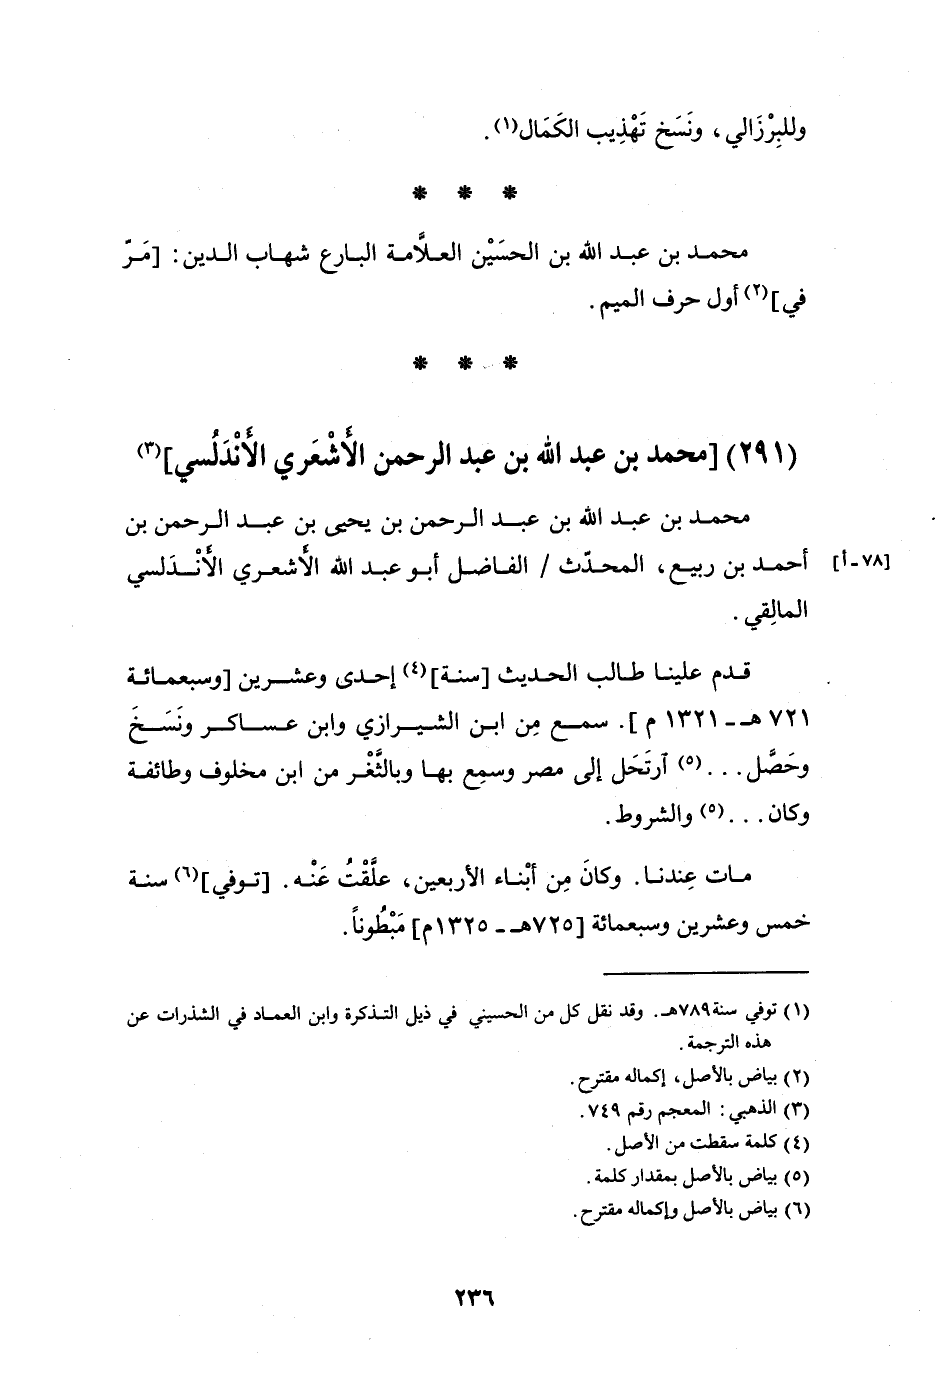 وللبِرْزَالي، ونَسَخ تَهْذِيب الكَمَال(١).
* * *
محمد بن عبد الله بن الحسَيْن العلَّامة البارع شهاب الدين: [مَرّ
في](٢) أول حرف الميم.
* * *
(٢٩١) [محمد بن عبد الله بن عبد الرحمن الأَشْعَري الأَنْدَلُسي](٣)
محمد بن عبد الله بن عبد الرحمن بن يحيى بن عبد الرحمن بن
[٧٨-أ] أحمد بن ربيع، المحدّث / الفاضل أبو عبد الله الأَشعري الأَنْدَلسي
المالِقي.
قدم علينا طالب الحديث [سنة](٤) إحدى وعشرين [وسبعمائة
٧٢١ هـ - ١٣٢١ م]. سمع مِن ابن الشيرازي وابن عساكر ونَسَخَ
وحَصَّل...(٥) آرتَحَل إلى مصر وسمِع بها وبالثَّغْر من ابن مخلوف وطائفة
وكان...(٥) والشروط.
مات عِندنا. وكانَ مِن أبْناء الأربعين، علَّقْتُ عَنْه. [توفي](٦) سنة
خمس وعشرين وسبعمائة [٧٢٥هـ - ١٣٢٥م] مَبْطُوناً.
(١) توفي سنة ٧٨٩هـ. وقد نقل كل من الحسيني في ذيل التذكرة وابن العماد في الشذرات عن
هذه الترجمة.
(٢) بياض بالأصل، إكماله مقترح.
(٣) الذهبي: المعجم رقم ٧٤٩.
(٤) كلمة سقطت من الأصل.
(٥) بياض بالأصل بمقدار كلمة.
(٦) بياض بالأصل وإكماله مقترح.
٢٣٦